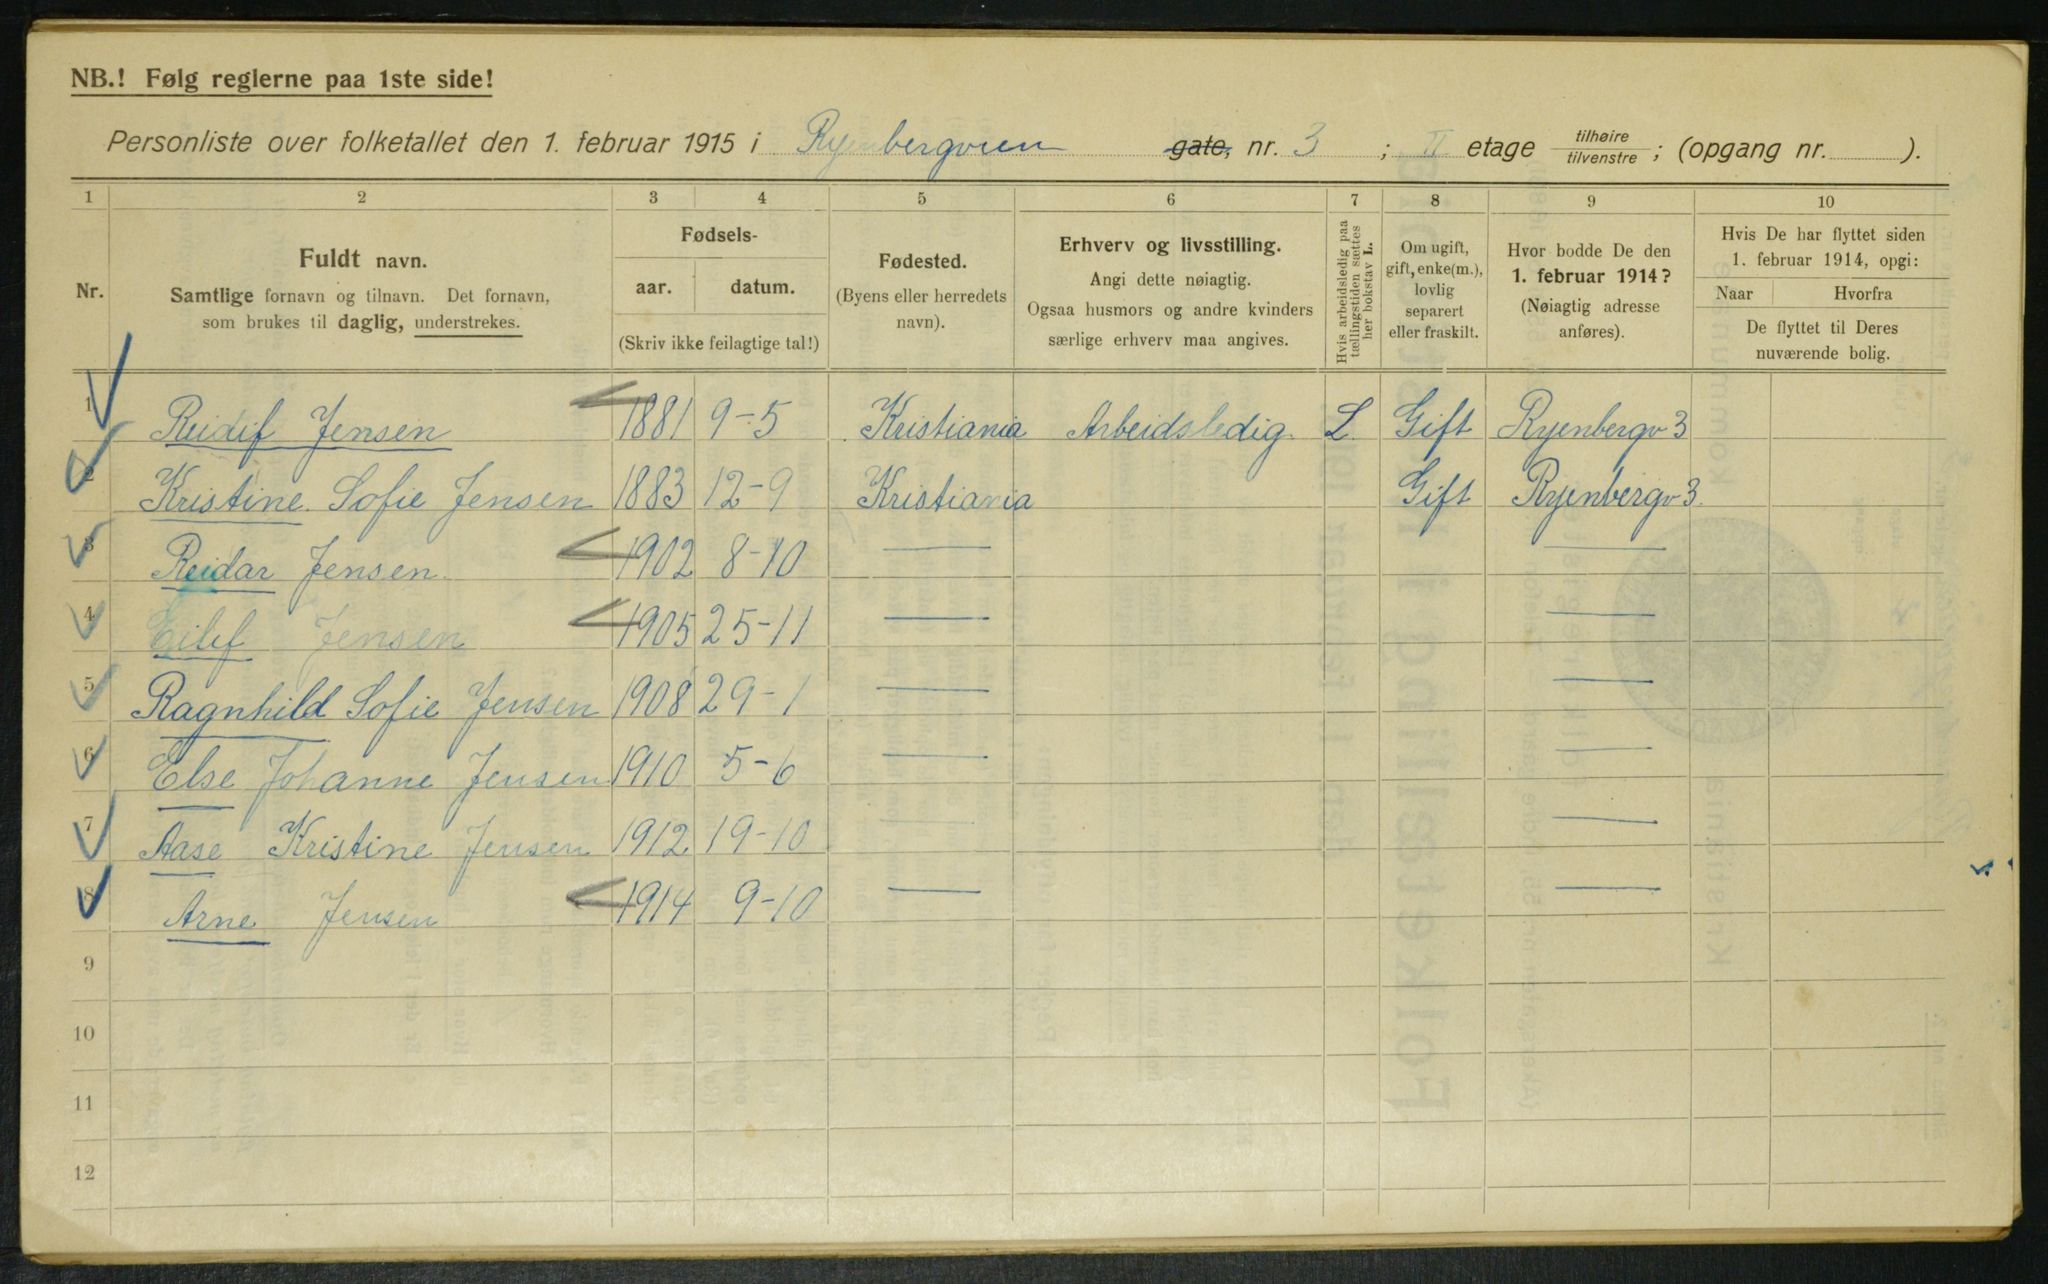 NB.! Følg reglerne paa 1ste side!
Personliste over folketallet den 1. februar 1915 i Ryenbergveien gate, nr. 3 ; II etage tilhøire tilvenstre ; (opgang nr. ).
1 2 3 4 5 6 7 8 9 10
Nr.
Fuldt navn.
Samtlige fornavn og tilnavn. Det fornavn,
som brukes til daglig, understrekes.
Fødsels-
aar. datum.
(Skriv ikke feilagtige tal!)
Fødested.
(Byens eller herredets
navn).
Erhverv og livsstilling.
Angi dette nøiagtig.
Ogsaa husmors og andre kvinders
særlige erhverv maa angives.
Hvis arbeidsledig paa
tællingstiden sættes
her bokstav L.
Om ugift,
gift, enke(m.),
lovlig
separert
eller fraskilt.
Hvor bodde De den
1. februar 1914?
(Nøiagtig adresse
anføres).
Hvis De har flyttet siden
1. februar 1914, opgi:
Naar Hvorfra
De flyttet til Deres
nuværende bolig.
1 Reidif Jensen 1881 9-5 Kristiania Arbeidsledig. L. Gift Ryenbergv 3
2 Kristine Sofie Jensen 1883 12-9 Kristiania Gift Ryenbergv 3.
3 Reidar Jensen 1902 8-10 — —
4 Eilif Jensen 1905 25-11 — —
5 Ragnhild Sofie Jensen 1908 29-1 — —
6 Else Johanne Jensen 1910 5-6 — —
7 Aase Kristine Jensen 1912 19-10 — —
8 Arne Jensen 1914 9-10 — —
9
10
11
12